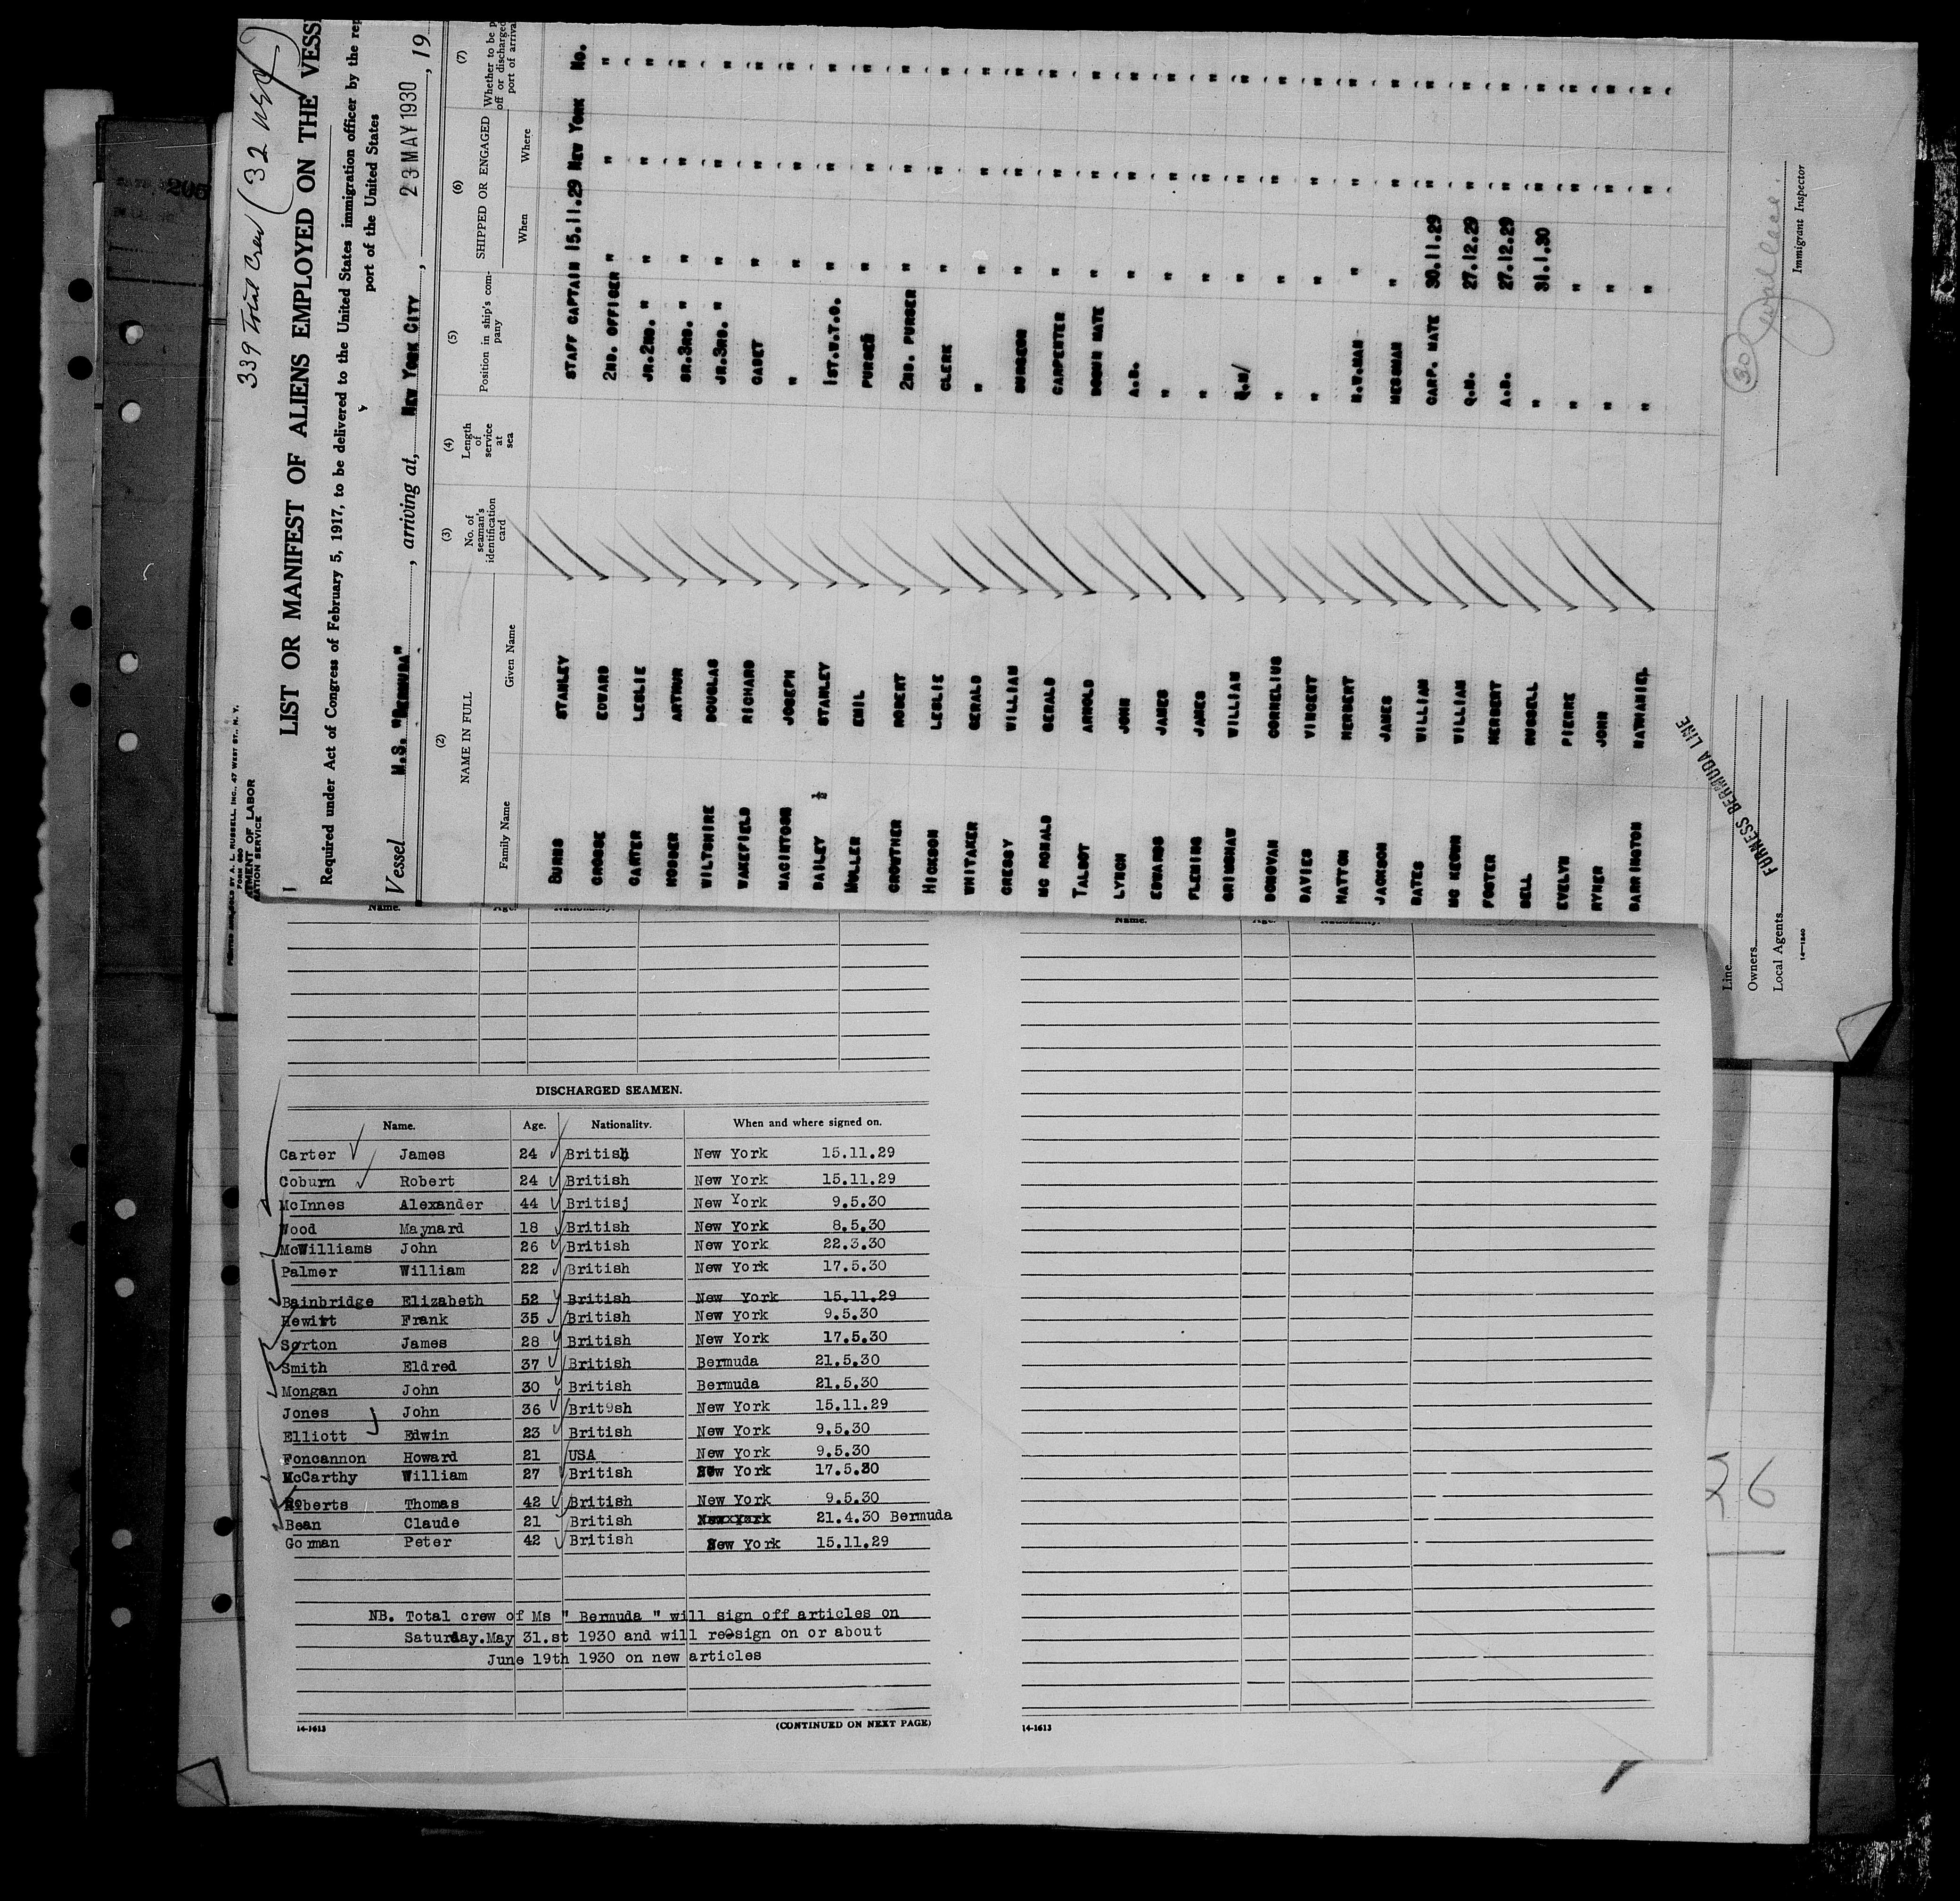 339 Total Crew (32 USC)
LIST OR MANIFEST OF ALIENS EMPLOYED ON THE VESS
Required under Act of Congress of February 5, 1917, to be delivered to the United States immigration officer by the rep
port of the United States
Vessel M.S. "BERMUDA", arriving at, NEW YORK CITY, 23 MAY 1930, 19
(2) (3) (4) (5) (6) (7)
NAME IN FULL No. of seaman's identification card Length of service at sea Position in ship's company SHIPPED OR ENGAGED Whether to be p off or discharged port of arrival
Family Name Given Name When Where
BURNS STANLEY STAFF CAPTAIN 15.11.29 NEW YORK NO.
CROSSE EDWARD 2ND. OFFICER " " "
CARTER LESLIE JR.2ND. " " " "
MOSER ARTHUR SR.3RD. " " " "
WILTSHIRE DOUGLAS JR.3RD. " " " "
WAKEFIELD RICHARD CADET " " "
MACINTOSH JOSEPH " " " "
DAILEY STANLEY 1ST.W.T.O. " " "
MULLER EMIL PURSER " " "
CROUTHER ROBERT 2ND. PURSER " " "
HICKSON LESLIE CLERK " " "
WHITAKER GERALD " " " "
GREGSY WILLIAM SURGEON " " "
MC RONALD GERALD CARPENTER " " "
TALBOT ARNOLD BOSUN MATE " " "
LYNCH JOHN A.B. " " "
EDWARDS JAMES " " " "
FLEMING JAMES " " " "
GRIMSHAW WILLIAM Q.M/ " " "
DONOVAN CORNELIUS " " " "
DAVIES VINCENT " " " "
HATTON HERBERT N.W.MAN " " "
JACKSON JAMES MESSMAN " " "
BATES WILLIAM CARP. MATE 30.11.29 " "
MC KEOWN WILLIAM Q.M. 27.12.29 " "
FOSTER HERBERT A.B. 27.12.29 " "
BELL RUSSELL " 31.1.30 " "
EVELYN PIERRE " " " "
RYNER JOHN " " " "
BARRINGTON NATHANIEL " " " "
FURNESS BERMUDA LINE
Line
Owners
Local Agents
14-1240
30 Wallace.
Immigrant Inspector
PRINTED AND SOLD BY A. L. RUSSELL, INC., 47 WEST ST., N. Y.
FORM 680
TMENT OF LABOR
ATION SERVICE
Name. Age. Nationality.
Name. Age. Nationality.
DISCHARGED SEAMEN.
Name. Age. Nationality. When and where signed on.
Carter James 24 British New York 15.11.29
Coburn Robert 24 British New York 15.11.29
McInnes Alexander 44 Britisj New York 9.5.30
Wood Maynard 18 British New York 8.5.30
McWilliams John 26 British New York 22.3.30
Palmer William 22 British New York 17.5.30
Bainbridge Elizabeth 52 British New York 15.11.29
Hewitt Frank 35 British New York 9.5.30
Sorton James 28 British New York 17.5.30
Smith Eldred 37 British Bermuda 21.5.30
Mongan John 30 British Bermuda 21.5.30
Jones John 36 Brit9sh New York 15.11.29
Elliott Edwin 23 British New York 9.5.30
Foncannon Howard 21 USA New York 9.5.30
McCarthy William 27 British New York 17.5.30
Roberts Thomas 42 British New York 9.5.30
Bean Claude 21 British NewxYork 21.4.30 Bermuda
Gorman Peter 42 British New York 15.11.29
NB. Total crew of Ms " Bermuda " will sign off articles on
Saturday.May 31.st 1930 and will re-sign on or about
June 19th 1930 on new articles
14-1613 (CONTINUED ON NEXT PAGE)
14-1613
26